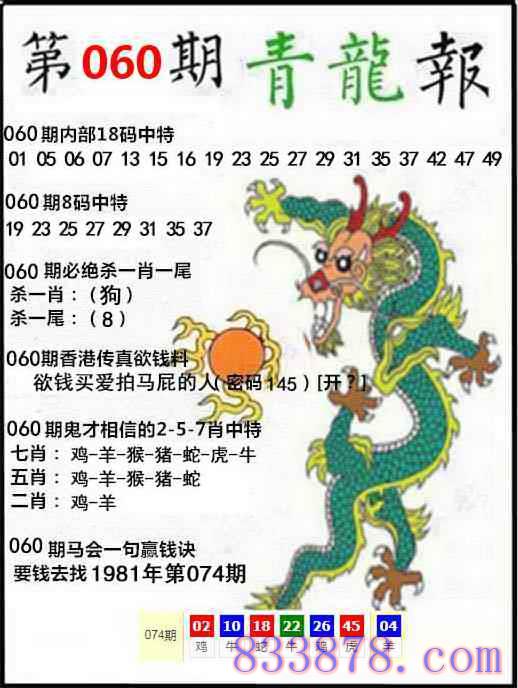 第060期 青龍報
060期内部18码中特
01 05 06 07 13 15 16 19 23 25 27 29 31 35 37 42 47 49
060期8码中特
19 23 25 27 29 31 35 37
060期必绝杀一肖一尾
杀一肖：（狗）
杀一尾：（8）
060期香港传真欲钱料
欲钱买爱拍马屁的人（密码145）[开？]
060期鬼才相信的2-5-7肖中特
七肖：鸡-羊-猴-猪-蛇-虎-牛
五肖：鸡-羊-猴-猪-蛇
二肖：鸡-羊
060期马会一句赢钱诀
要钱去找1981年第074期
074期 02 10 18 22 26 45 04
鸡 牛 蛇 牛 鸡 虎 羊
833878.com